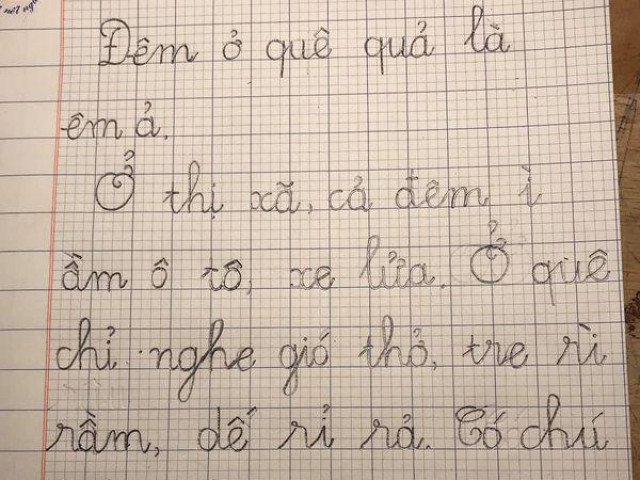 Đêm ở quê quả là
êm ả.
Ở thị xã, cả đêm ì
ầm ô tô, xe lửa. Ở quê
chỉ nghe gió thở, tre rì
rầm, dế rỉ rả. Có chú